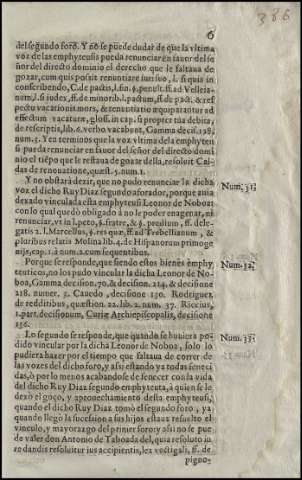 6
386
del segundo foro. Y no se puede dudar de que la vltima
voz de las emphyteusis pueda renunciar en fauor del señor
del directo dominio el derecho que le faltaua de
gozar, cum quis possit renuntiare iuri suo, l. si quis in
conscribendo, C. de pactis, l. fin. §. penult. ff. ad Velleia-
num, l. si iudex, ff. de minorib. l. pactum, ff. de pact. & res
pectu vacationis mors, & renuntiatio æquiparantur ad
effectum vacaturæ, gloss. in cap. si propter tua debita,
de rescriptis, lib. 6. verbo vacabunt, Gamma decis. 128,
num. 3. Y en terminos que la voz vltima de la emphyteu
si pueda renunciar en fauor del señor del directo domi
nio el tiẽpo que le restaua de gozar della, resoluit Cal-
das de renouatione, quæst. 5. num. 1.
Y no obstará dezir, que no pudo renunciar la dicha
voz el dicho Ruy Diaz segundo aforador, porque auia
dexado vinculada esta emphyteusi Leonor de Noboa:
con lo qual quedò obligado à no le poder enagenar, ni
renunciar, vt in l. peto, §. fratre, & §. prædium, ff. de le-
gatis 2. l. Marcellus, §. res quæ, ff. ad Trebellianum, &
pluribus relatis Molina lib. 4. de Hispanorum primoge
nijs, cap. 1. à num. 2. cum sequentibus.
Num. 31.
Porque se responde, que siendo estos bienes ẽmphy
teuticos, no los pudo vincular la dicha Leonor de No-
boa, Gamma decision. 70. & decision. 214. & decisione
218. numer. 3. Cauedo, decisione 130. Rodriguez
de redditibus, quæstion. 22. lib. 2. num. 37. Riccius,
1. part. decisionum, Curiæ Archiepiscopalis, decisione
236.
Num. 32.
Lo segundo se responde, que quando se huuiera po-
dido vincular por la dicha Leonor de Noboa, solo lo
pudiera hazer por el tiempo que faltaua de correr de
las vozes del dicho foro, y assi estando ya todas seneci
das, ò por lo menos acabandose de fenecer con la vida
del dicho Ruy Diaz segundo emphyteuta, à quien se le
dexò el goço, y aprouechamiento desta emphyteusi,
quando el dicho Ruy Diaz tomò el segundo foro, ya
quando llegò la sucession a sus hijos estaua resuelto el
vinculo, y mayorazgo del primer foro: y assi no se pue
de valer don Antonio de Taboada del, quia resoluto iu
re dantis resoluitur ius accipientis, lex vectigali, ff. de
Num. 33.
pigno-